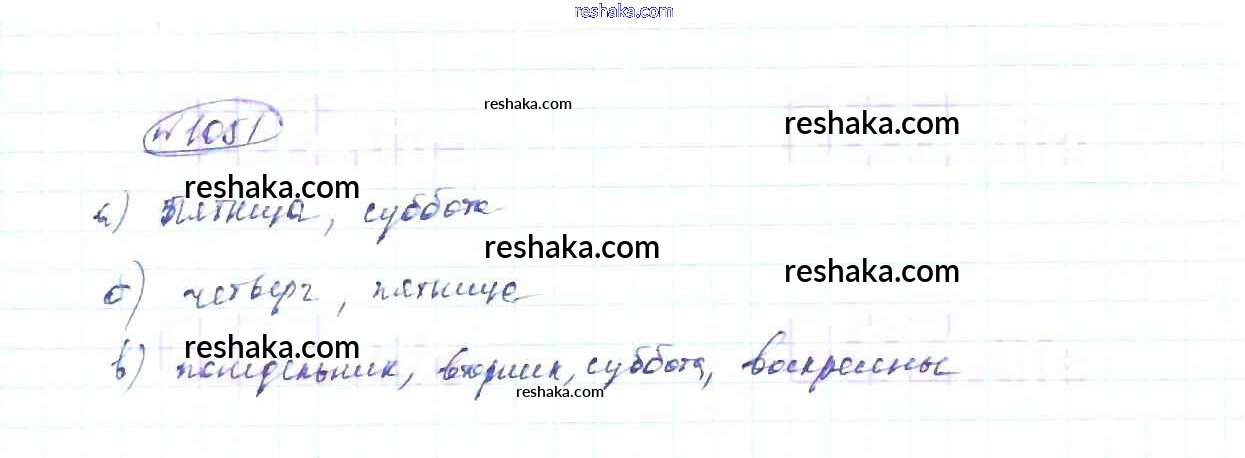 reshaka.com
reshaka.com
№ 1051
reshaka.com
reshaka.com
а) пятница, суббота
reshaka.com
reshaka.com
б) четверг, пятница
reshaka.com
в) понедельник, вторник, суббота, воскресенье
reshaka.com